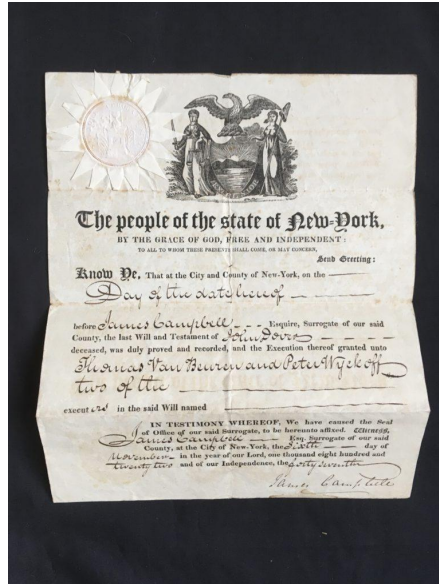 The people of the state of New-York,
BY THE GRACE OF GOD, FREE AND INDEPENDENT:
TO ALL TO WHOM THESE PRESENTS SHALL COME, OR MAY CONCERN,
Send Greeting:
Know Ye, That at the City and County of New-York, on the
Day of the date hereof
before James Campbell Esquire, Surrogate of our said
County, the last Will and Testament of John
deceased, was duly proved and recorded, and the Execution thereof granted unto
Thomas Van Beuren and Peter Wyckoff
two of the
executors in the said Will named
IN TESTIMONY WHEREOF, We have caused the Seal
of Office of our said Surrogate, to be hereunto affixed. WITNESS,
James Campbell Esq. Surrogate of our said
County, at the City of New-York, the Sixth day of
November in the year of our Lord, one thousand eight hundred and
twenty two and of our Independence, the forty seventh
James Campbell